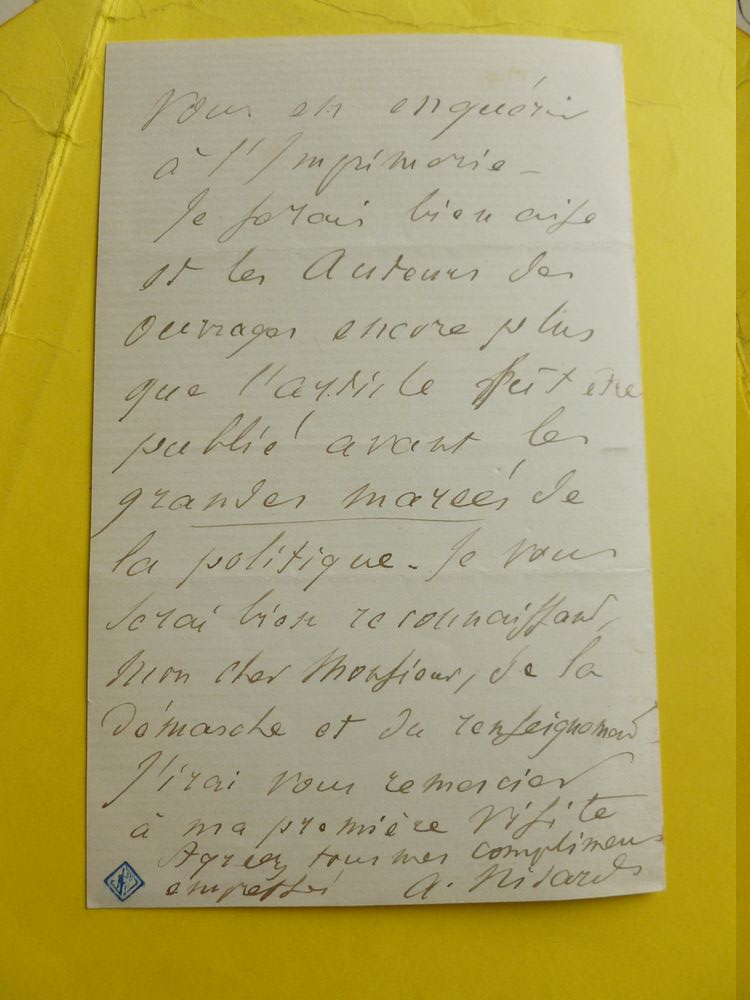 vous en enquérir
à l'Imprimerie -
Je serais bien aise
et les Auteurs des
ouvrages encore plus
que l'article fût être
publié avant les
grandes mareés de
la politique. Je vous
serai bien reconnaissant,
mon cher Monsieur, de la
démarche et du renseignement
J'irai vous remercier
à ma première visite
Agréez tous mes complimens
empressés A. Nisard